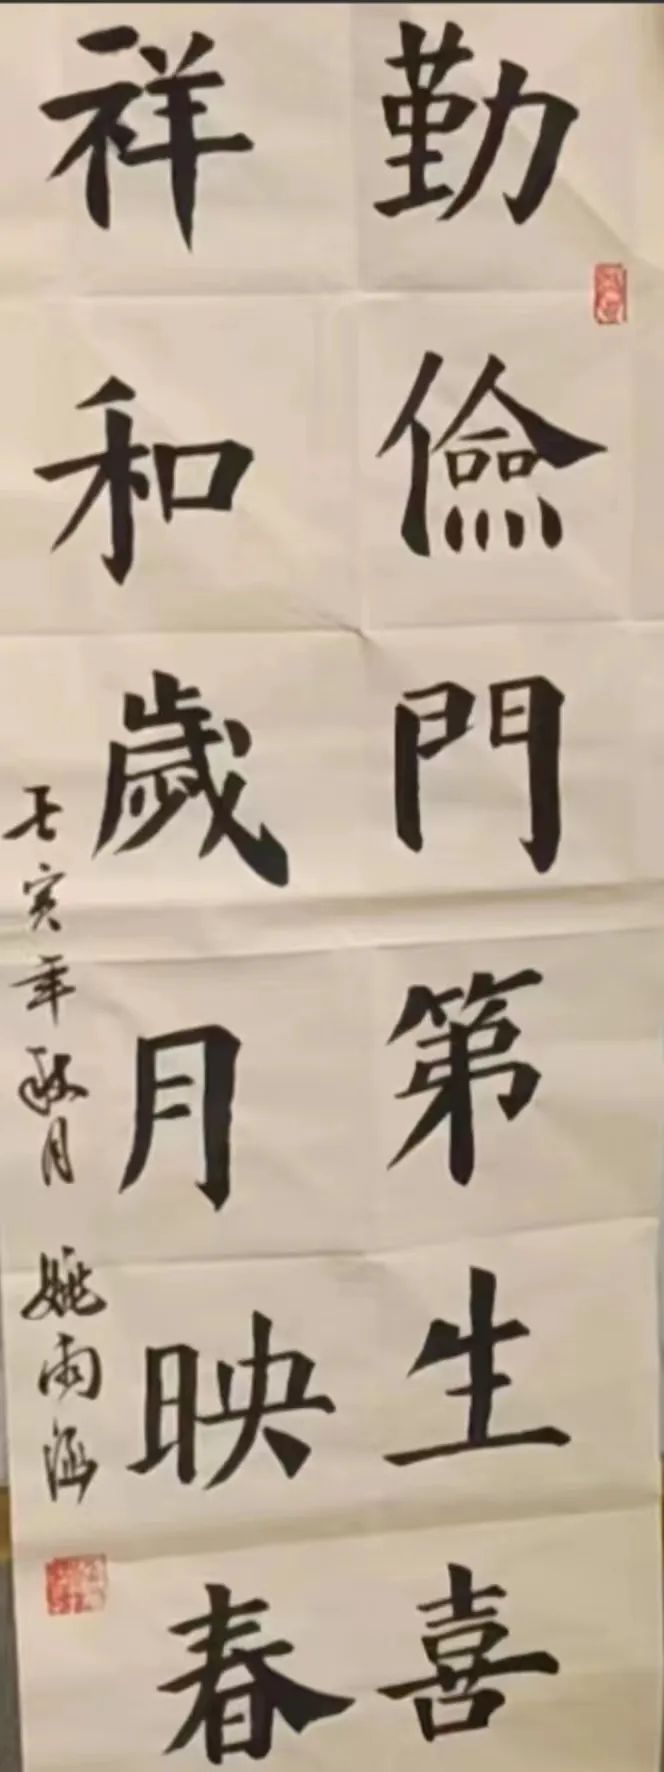 勤儉門第生喜
祥和歲月映春
壬寅年秋月 姚雨涵